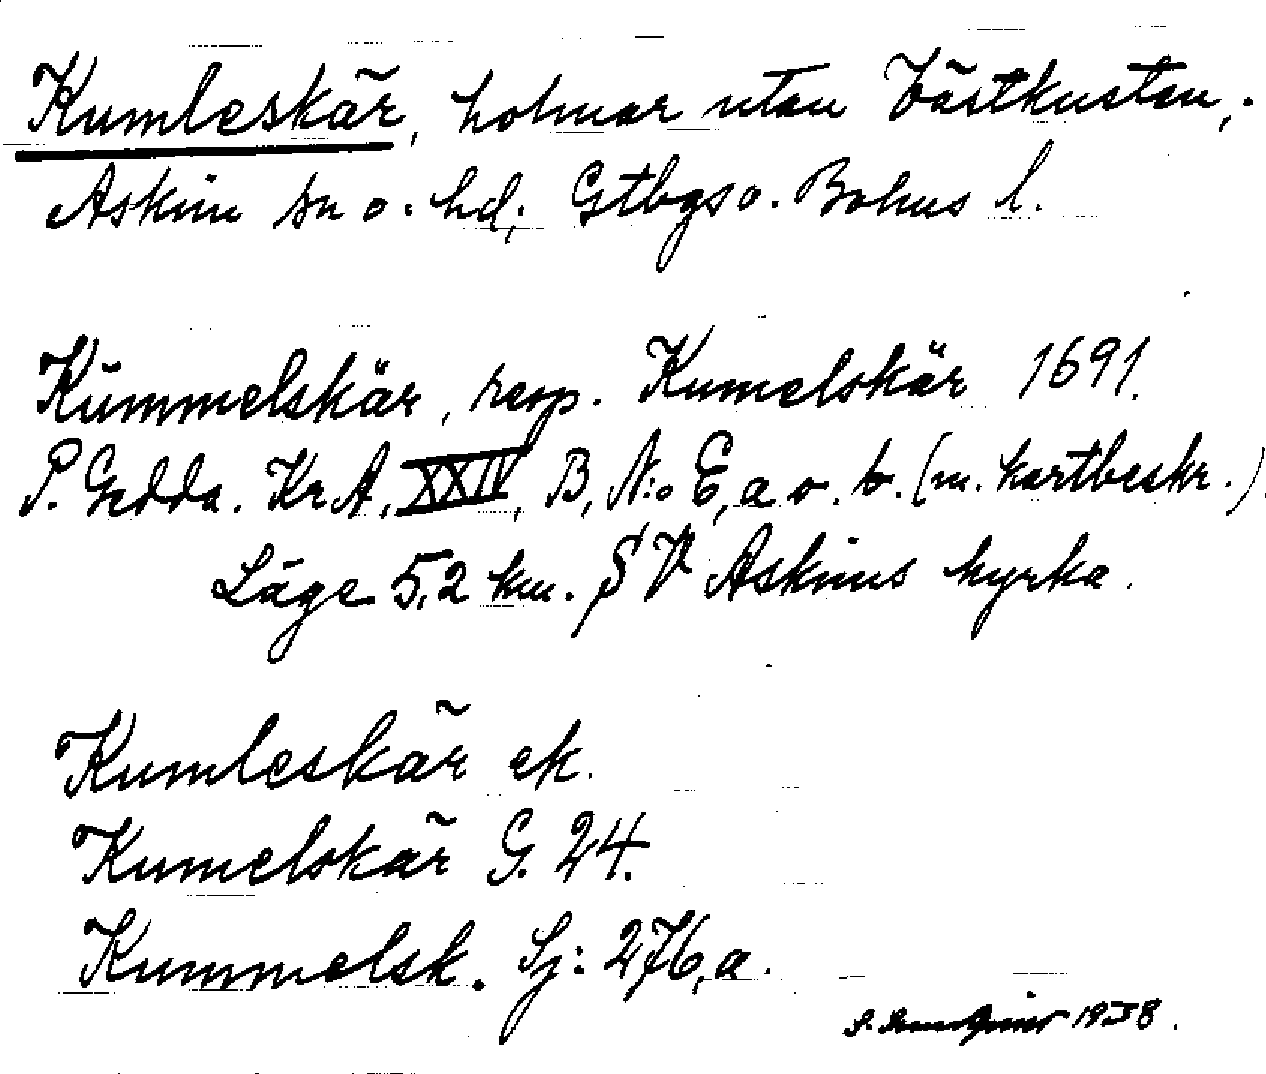 Kumleskär, holmar utan Västkusten,.
Askim sn o. hd; Gtbgs o. Bohus l.
Kŭmmelskär, resp. Kumelskär 1691.
P. Gedda. Kr.A. XXIV, B, N:o E, a o. b. (m. kartbeskr.)
Läge 5,2 km. SV Askims kyrka.
Kumleskär ek.
Kumelskär G. 24.
Kummelsk. Sj: 276,a.
1938.